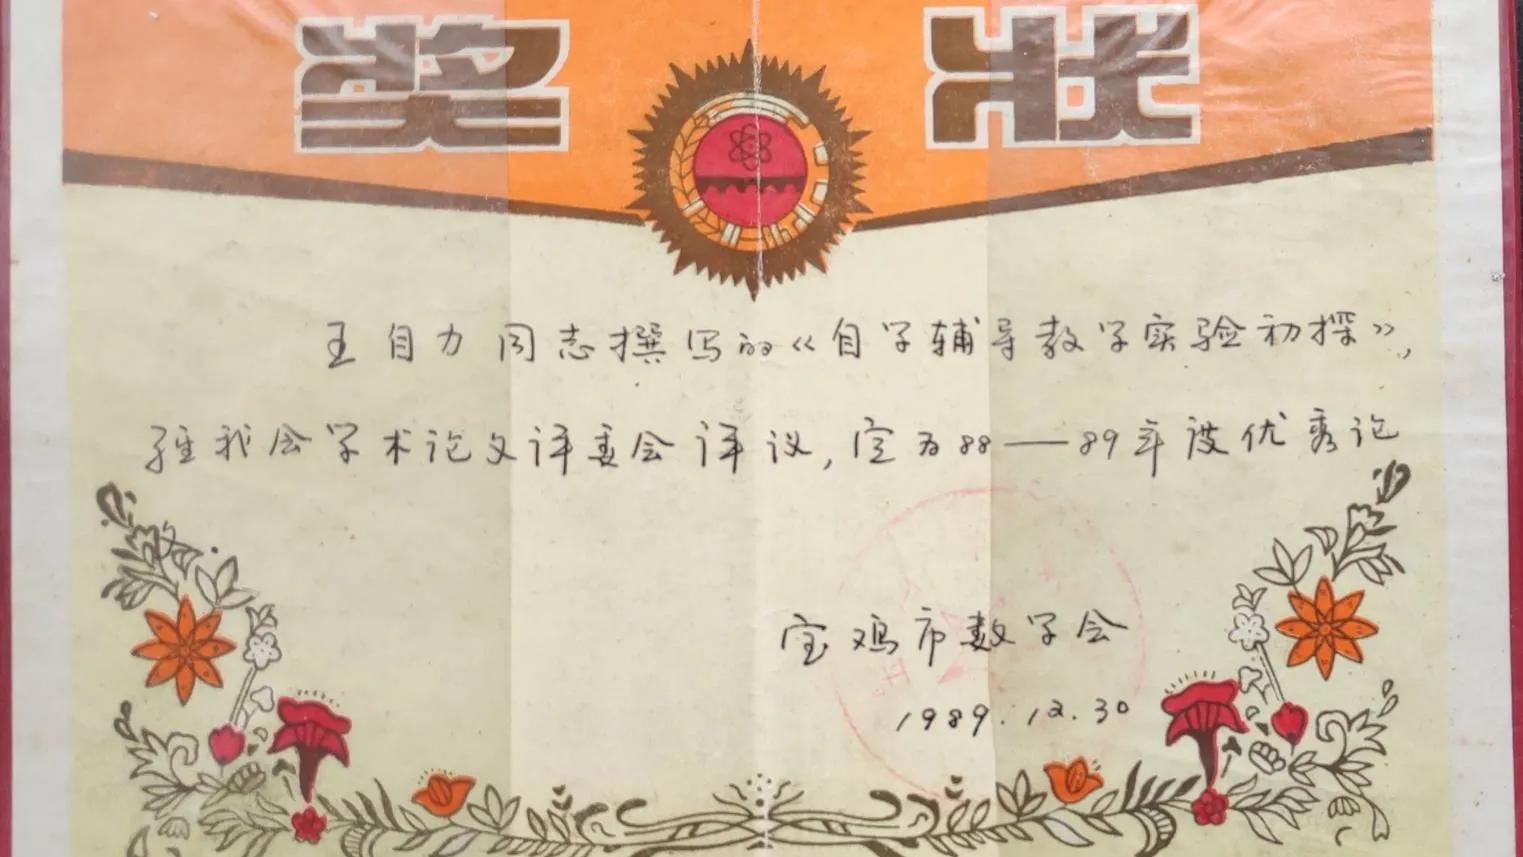 奖状
王自力同志撰写的《自学辅导教学实验初探》,
经我会学术论文评委会评议,定为88——89年度优秀论
文.
宝鸡市数学会
1989.12.30